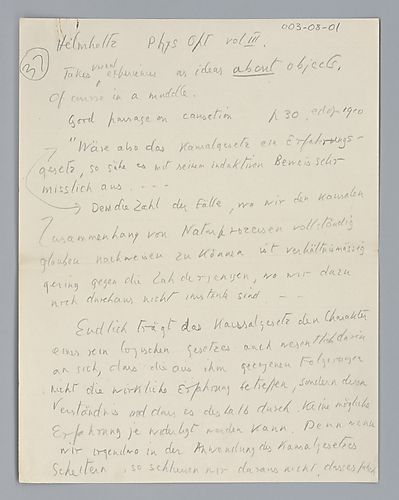 003-08-01
37
Helmholtz Phys Opt vol III.
Takes experience as ideas about objects.
Of course in a muddle.
Good passage on causation p 30 edn 1910
"Wäre also das Kausalgesetz ein Erfahrungs-
gesetz, so sähe es mit seinem induktiven Beweis sehr
misslich aus. - - - -
Denn die Zahl der Fälle, wo wir den kausalen
Zusammenhang von Naturprozessen vollständig
glauben nachweisen zu können ist verhältnismässig
gering gegen die Zahl derjenigen, wo wir dazu
noch durchaus nicht imstande sind. - -
Endlich trägt das Kausalgesetz den Charakter
eines rein logischen Gesetzes auch wesentlich darin
an sich, dass die aus ihm gezogenen Folgerungen
nicht die wirkliche Erfahrung betreffen, sondern deren
Verständnis und dass es deshalb durch keine mögliche
Erfahrung je widerlegt werden kann. Denn wenn
wir irgendwo in der Anwendung des Kausalgesetzes
Scheitern, so schliessen wir daraus nicht, dass es falsch